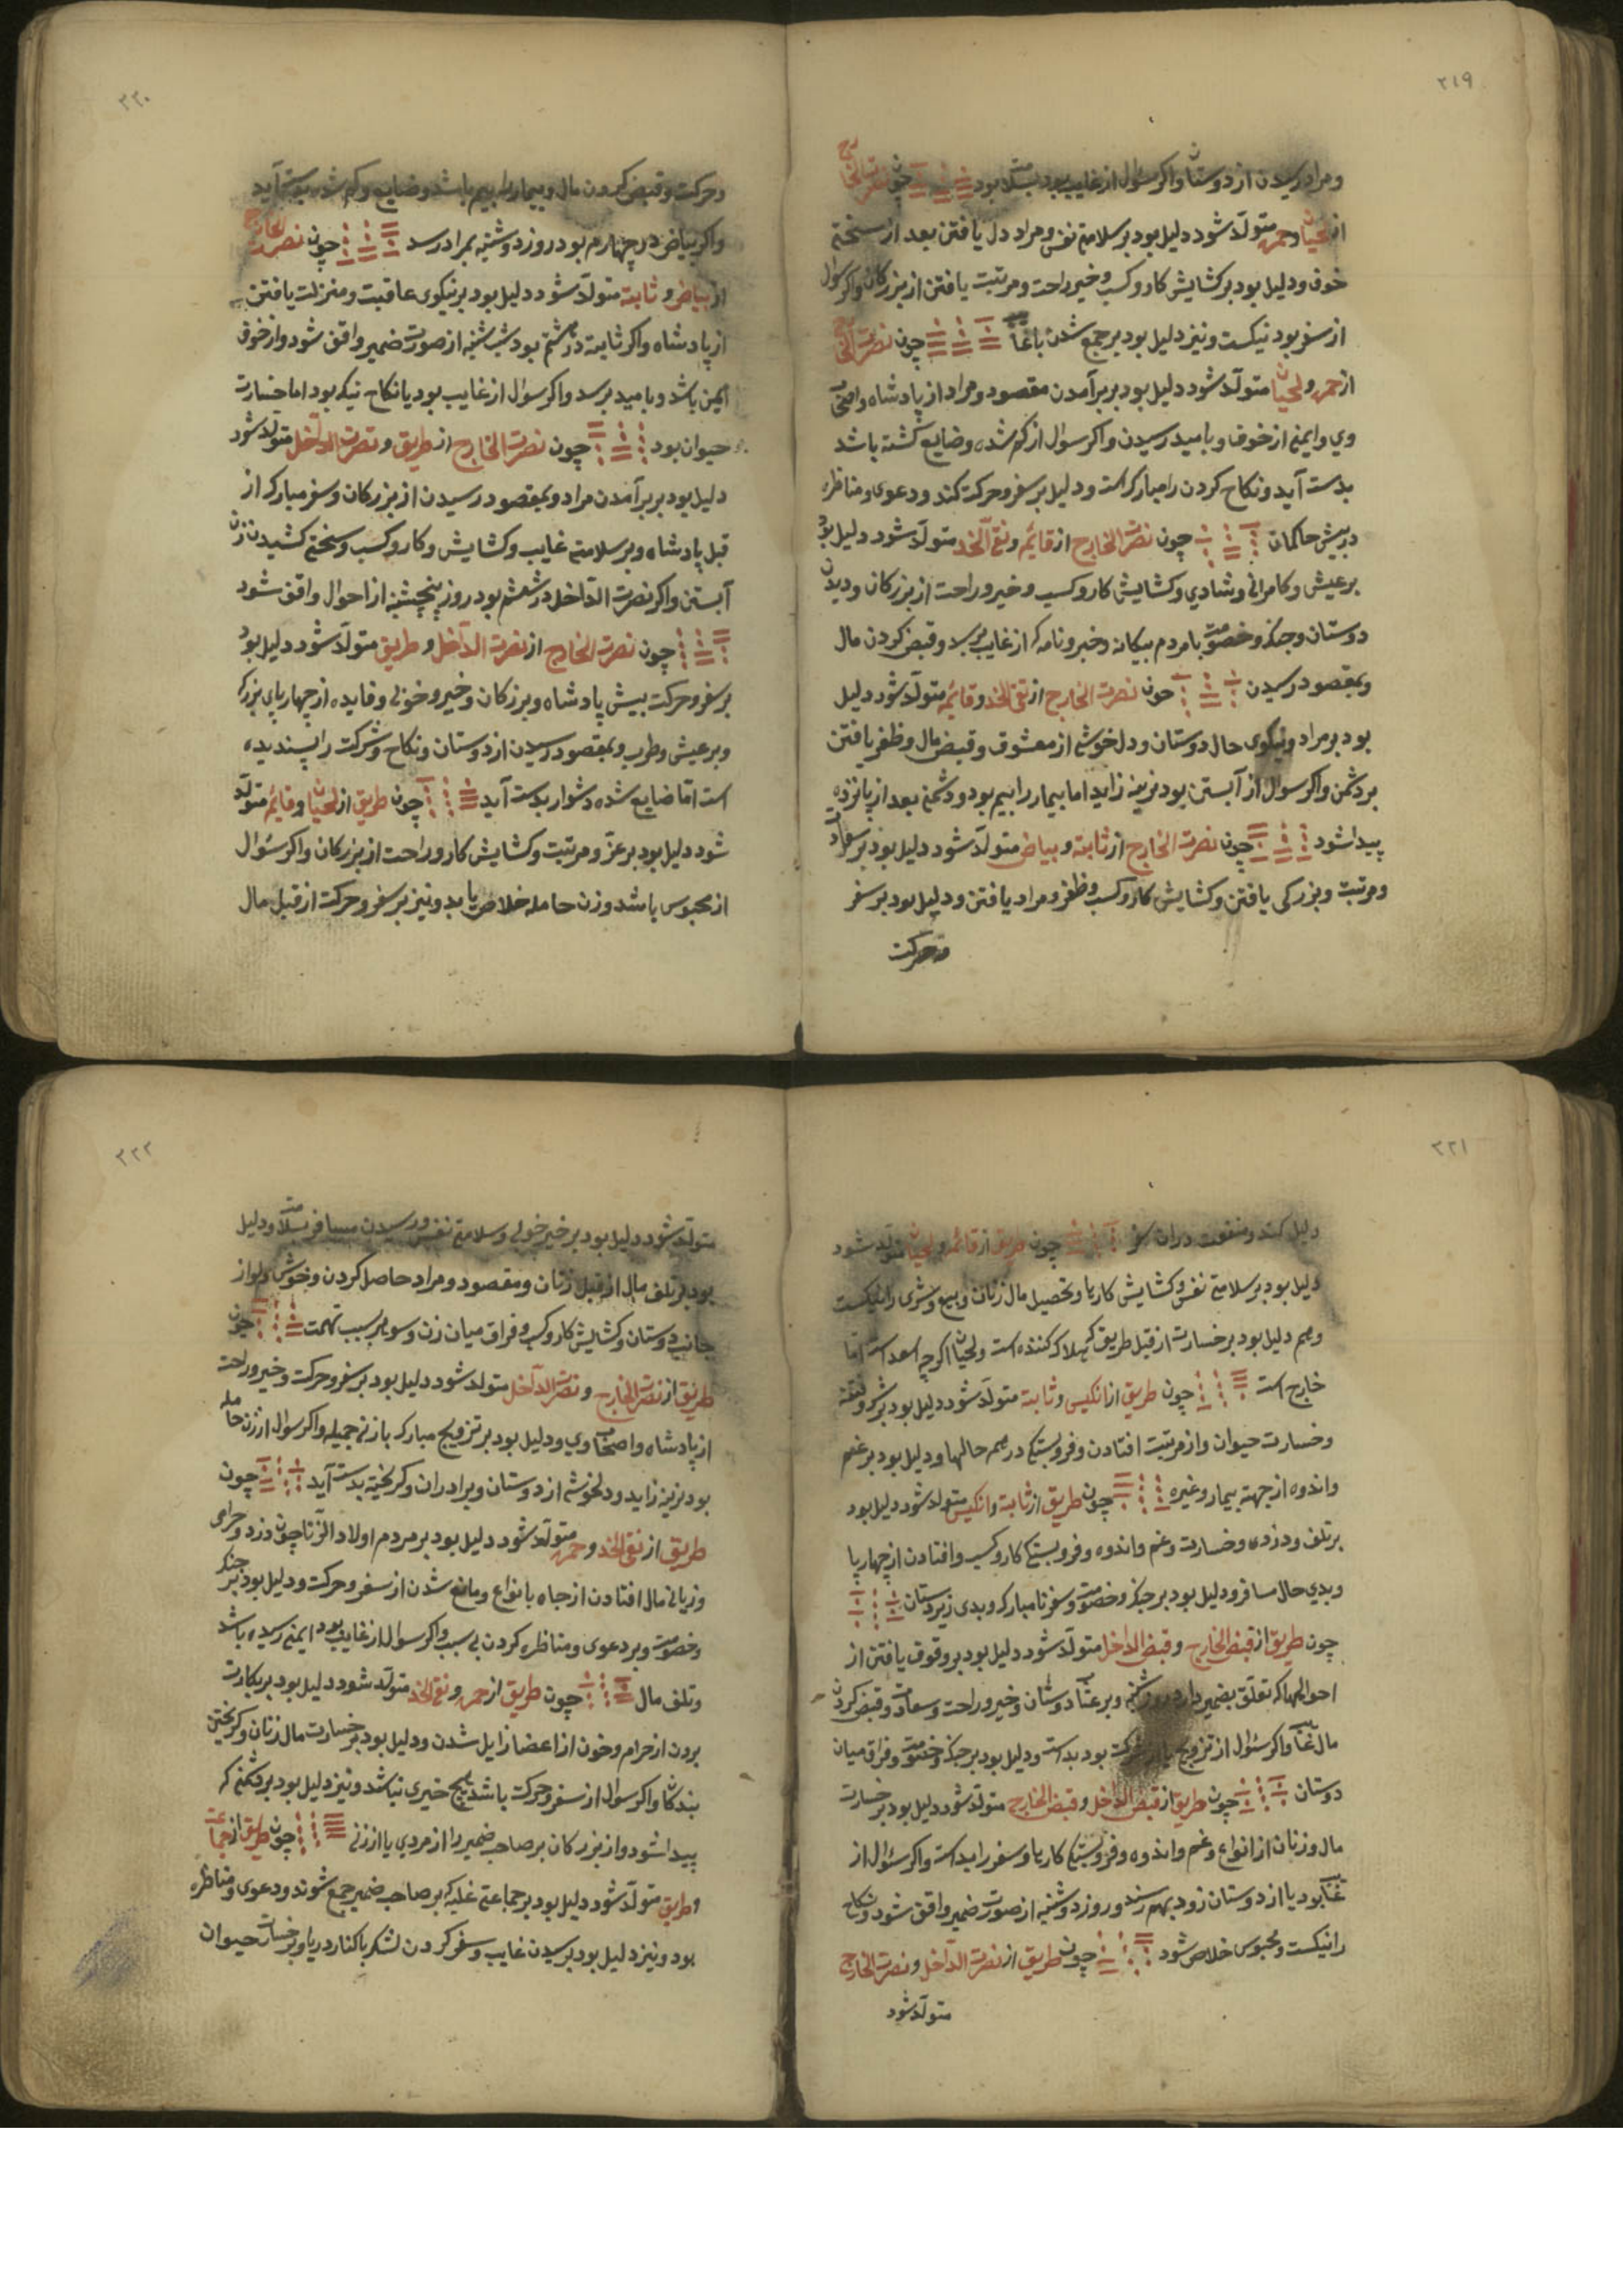 ۲۱۹
ومراد رسیدن از دوستان واکر سؤال از غایب بود بسلامت بود چون نصرت الخارج
از لحیان وحمره متولد شود دلیل بود بر سلامتی نفس ومراد دل یافتن بعد از سختی
خوف ودلیل بود بر کشایش کار وکسب وخیر وراحت ومرتبت یافتن از بزرکان واکر سؤال
از سفر بود نیکست ونیز دلیل بود بر جمع شدن با غایب چون نصرت الخارج
از حمره ولحیان متولد شود دلیل بود بر برآمدن مقصود ومراد از پادشاه واصحاب
وي وایمنی از خوف وبامید رسیدن واکر سؤال از کم شده وضایع کشته باشد
بدست آید ونکاح کردن را مبارک است ودلیل بر سفر وحرکت کند ودعوی ومناظره
در پیش حاکمان چون نصرت الخارج از قائمه ونقی الخد متولد شود دلیل بود
بر عیش وکامرانی وشادي وکشایش کار وکسب وخیر وراحت از بزرکان ودیدن
دوستان وجنک وخصومت با مردم بیکانه وخبر ونامه که از غایب برسد وقبض کردن مال
وبمقصود رسیدن چون نصرت الخارج از نقی الخد وقائمه متولد شود دلیل
بود بر مراد ونیکوی حال دوستان ودلخوشی از معشوق وقبض مال وظفر یافتن
بر دشمن واکر سوال از آبستن بود نرینه زاید اما بیمار را بیم بود ودشمنی بعد از پانزده
پیدا شود چون نصرت الخارج از ثابته وبیاض متولد شود دلیل بود بر سعادت
ومرتبت وبزرکی یافتن وکشایش کار وکسب وظفر ومراد یافتن ودلیل بود بر سفر
وحرکت
۲۲۰
وحرکت وقبض کردن مال وبیمار را بیم باشد وضایع وکم شده بدست آید
واکر بیاض در چهارم بود روز دوشنبه بمراد رسد چون نصرت الخارج
از بیاض وثابته متولد شود دلیل بود بر نیکوی عاقبت ومنزلت یافتن
از پادشاه واکر ثابته در هشتم بود شب شنبه از صورت ضمیر واقف شود واز خوف
ایمن باشد وبامید برسد واکر سوال از غایب بود یا نکاح نیکه بود اما خسارت
حیوان بود چون نصرت الخارج از طریق ونصرت الداخل متولد شود
دلیل بود بر برآمدن مراد وبمقصود رسیدن از بزرکان وسفر مبارک از
قبل پادشاه وبر سلامتی غایب وکشایش وکار وکسب وسختی کشیدن زن
آبستن واکر نصرت الداخل در ششم بود روز پنجشنبه از احوال واقف شود
چون نصرت الخارج از نصرت الداخل وطریق متولد شود دلیل بود
بر سفر وحرکت پیش پادشاه وبزرکان وخیر وخوبی وفایده از چهارپای بزرک
وبر عیش وطرب وبمقصود رسیدن از دوستان ونکاح وشرکت را پسندیده
است اما ضایع شده دشوار بدست آید چون طریق از لحیان وقائمه متولد
شود دلیل بود بر عز ومرتبت وکشایش کار وراحت از بزرکان واکر سئوال
از محبوس باشد وزن حامله خلاص یابد ونیز بر سفر وحرکت از قبل مال
۲۲۱
دلیل کند ومنفعت دران سفر چون طریق از قائمه ولحیان متولد شود
دلیل بود بر سلامتی نفس وکشایش کارها وتحصیل مال زنان وبیع وشری را نیکست
وهم دلیل بود بر خسارت از قبل طریق که هلاک کننده است ولحیان اکرچه اسعد است اما
خارج است چون طریق از انکیس وثابته متولد شود دلیل بود بر شر وفتنه
وخسارت حیوان واز مرتبت افتادن وفروبستکی در همه حالها ودلیل بود بر غم
واندوه از جهته بیمار وغیره چون طریق از ثابته وانکیس متولد شود دلیل بود
بر تلف ودزدی وخسارت وغم واندوه وفروبستکی کار وکسب وافتادن از چهارپا
وبدی حال مسافر ودلیل بود بر جنک وخصومت وسفر نامبارک وبدی زیردستان
چون طریق از قبض الخارج وقبض الداخل متولد شود دلیل بود بر وقوف یافتن از
احوالها که تعلق بضمیر دارد روز شنبه وبر عتاب دوستان وخیر وراحت وسعادت وقبض کردن
مال غایب واکر سئوال از تزویج یا شرکت بود بد است ودلیل بود بر جنک وخصومت وفراق میان
دوستان چون طریق از قبض الداخل وقبض الخارج متولد شود دلیل بود بر خسارت
مال وزنان از انواع وغم واندوه وفروبستکی کارها وسفر را بد است واکر سئوال از
غایب بود یا از دوستان زود بهم رسند وروز دوشنبه از صورت ضمیر واقف شود ونکاح
را نیکست ومحبوس خلاص شود چون طریق از نصرت الداخل ونصرت الخارج
متولد شود
۲۲۲
متولد شود دلیل بود بر خیر خوبی وسلامتی نفس ورسیدن مسافر بسلامت ودلیل
بود بر تلف مال از قبل زنان ومقصود ومراد حاصل کردن وخوش دلی از
جانب دوستان وکشایش کار وکسب وفراق میان زن وشوهر بسبب تهمت چون
طریق از نصرت الخارج ونصرت الداخل متولد شود دلیل بود بر سفر وحرکت وخیر وراحت
از پادشاه واصحاب وي ودلیل بود بر تزویج مبارک با زنی جمیله واکر سوال از زن حامله
بود نرینه زاید ودلخوشی از دوستان وبرادران وکریخته بدست آید چون
طریق از نقی الخد وحمره متولد شود دلیل بود بر مردم اولاد الزنا چون دزد وحرامی
وزیانی مال افتادن از جاه بانواع ومانع شدن از سفر وحرکت ودلیل بود بر جنک
وخصومت وبر دعوی ومناظره کردن بی سبب واکر سوال از غایب بود ایمنی رسیده باشد
وتلف مال چون طریق از حمره ونقی الخد متولد شود دلیل بود بر بکارت
بردن از حرام وخون از اعضا زایل شدن ودلیل بود بر خسارت مال زنان وکریختن
بندکان واکر سوال از سفر وحرکت باشد هیچ خیری نباشد ونیز دلیل بود بر دشمنی که
پیدا شود واز بزرکان بر صاحب ضمیر را از مردي یا از زنی چون طریق از جماعت
وطریق متولد شود دلیل بود بر جماعتی غلبه که بر صاحب ضمیر جمع شوند ودعوی ومناظره
بود ونیز دلیل بود بر رسیدن غایب وسفر کردن لشکر با کنار دریا وبر خسارت حیوان